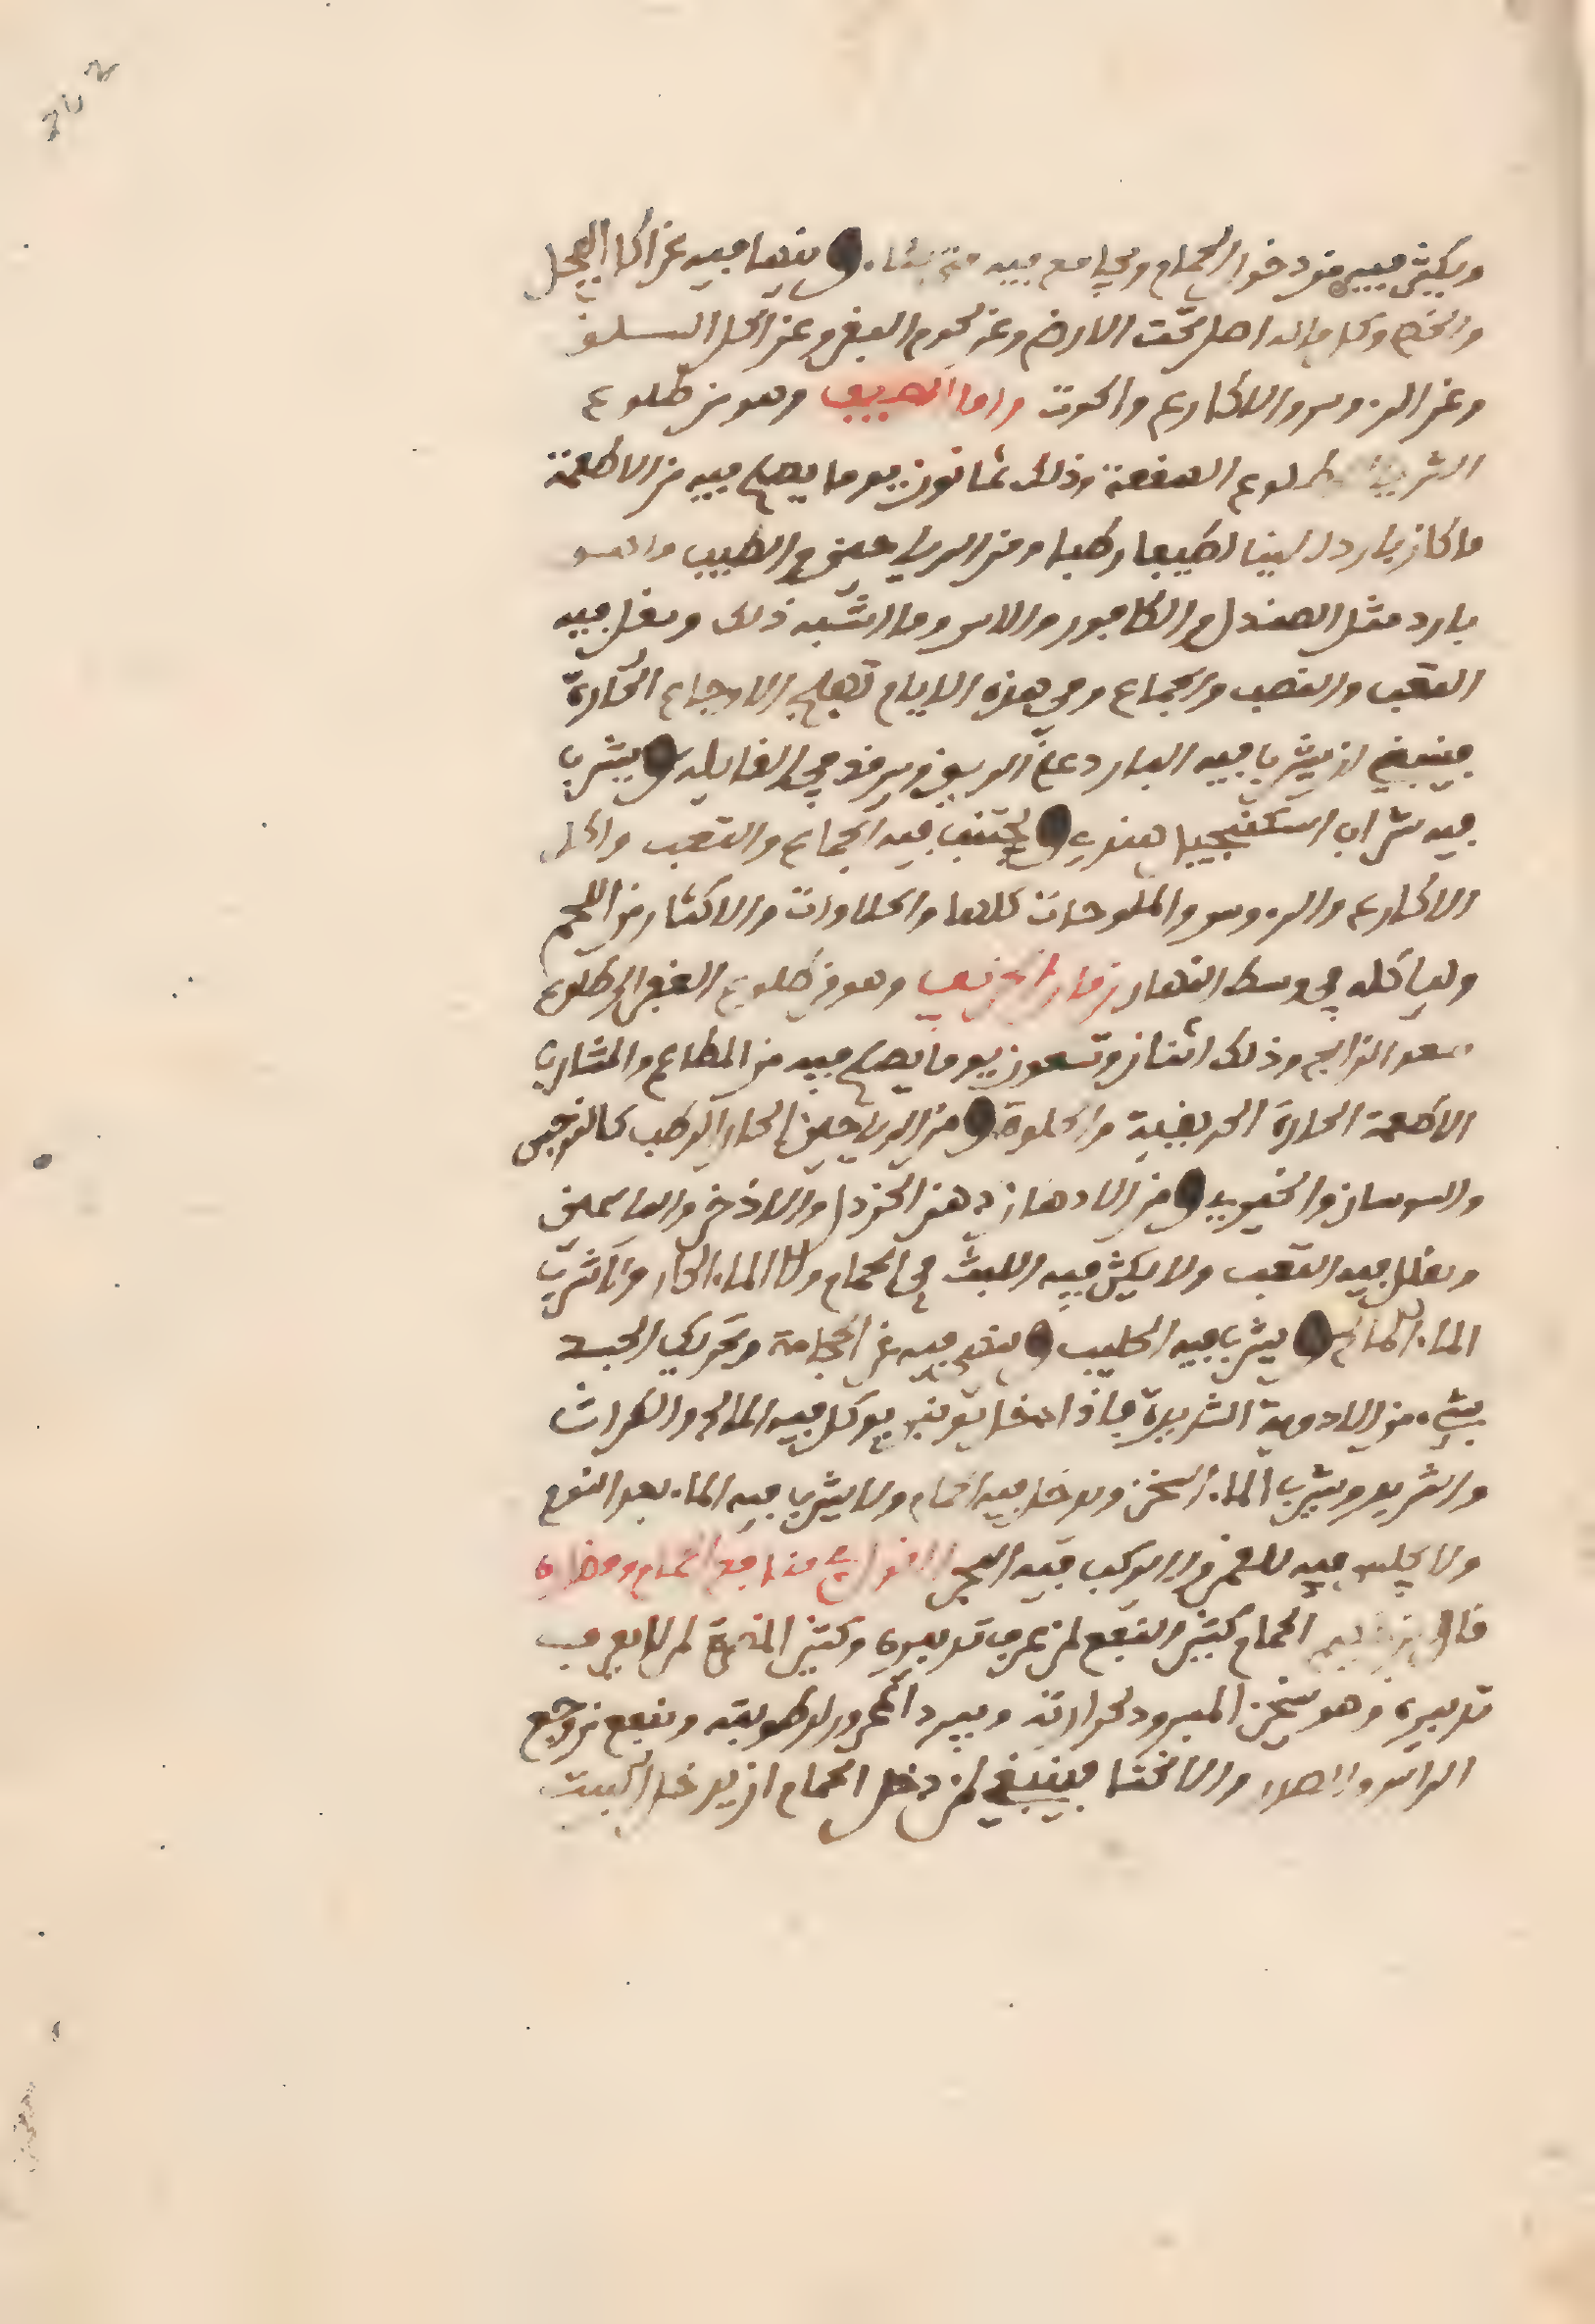 ويكثر فيه من دخول الحمام ويجامع فيه متى شاء وينها فيه عن اكل البجل
والخضر وكل ماله اصل تحت الارض وعن لحوم البقر وعن اكل السلق
وعن الروس والاكارع والحوت واما الصيف وهو من طلوع
الثريا طلوع الصفعة وذلك ثمانون يوما يصلح فيه من الاطعمة
ما كان باردا لينا لطيفا رطبا ومن الرياحين والطيب
بارد مثل الصندل والكافور والاس وما اشبه ذلك ويقل فيه
التعب والنصب والجماع وفي هذه الايام تهيج الاوجاع الحارة
فينبغي ان يشرب فيه البارد على الريق ويرقد في القايلة ويشرب
فيه شراب اسكنجبيا هندي ويجتنب فيه الجماع والتعب واكل
الاكارع والروس والملوحات كلها والحلاوات والاكثار من اللحم
ولياكله في وسط النهار زمان الخريف وهو من طلوع الغفر الى طلوع
سعد الذابح وذلك اثنان وتسعون يوما يصلح فيه من المطاعم والمشارب
الاطعمة الحارة الحريفية والحلوة ومن الرياحين الحار الرطب كالنرجس
والسوسان والخيري ومن الادهان دهن الخردل والاذخر والياسمين
ويقلل فيه التعب ولا يكثر فيه اللبث في الحمام ولا الماء الحار ولا شرب
الماء المالح ويشرب فيه الحليب وينهى فيه عن الحجامة وتحريك الجسد
بشيء من الادوية الشديدة فاذا دخل يونير يوكل فيه المالح والكراث
والثريد ويشرب الماء السخن ويدخل فيه الحمام ولا يشرب فيه الماء بعد النوم
ولا يجلس فيه للقمر ولا يركب فيه البحر القول في منافع الحمام ومضاره
قال الحمام كثير النفع لمن عرف تدبيره وكثير المضرة لمن لا يعرف
تدبيره وهو يسخن المبرود لحرارته ويبرد المحرور لرطوبته وينفع من وجع
الراس والصدر والاخشا فينبغي لمن دخل الحمام ان يدخل البيت